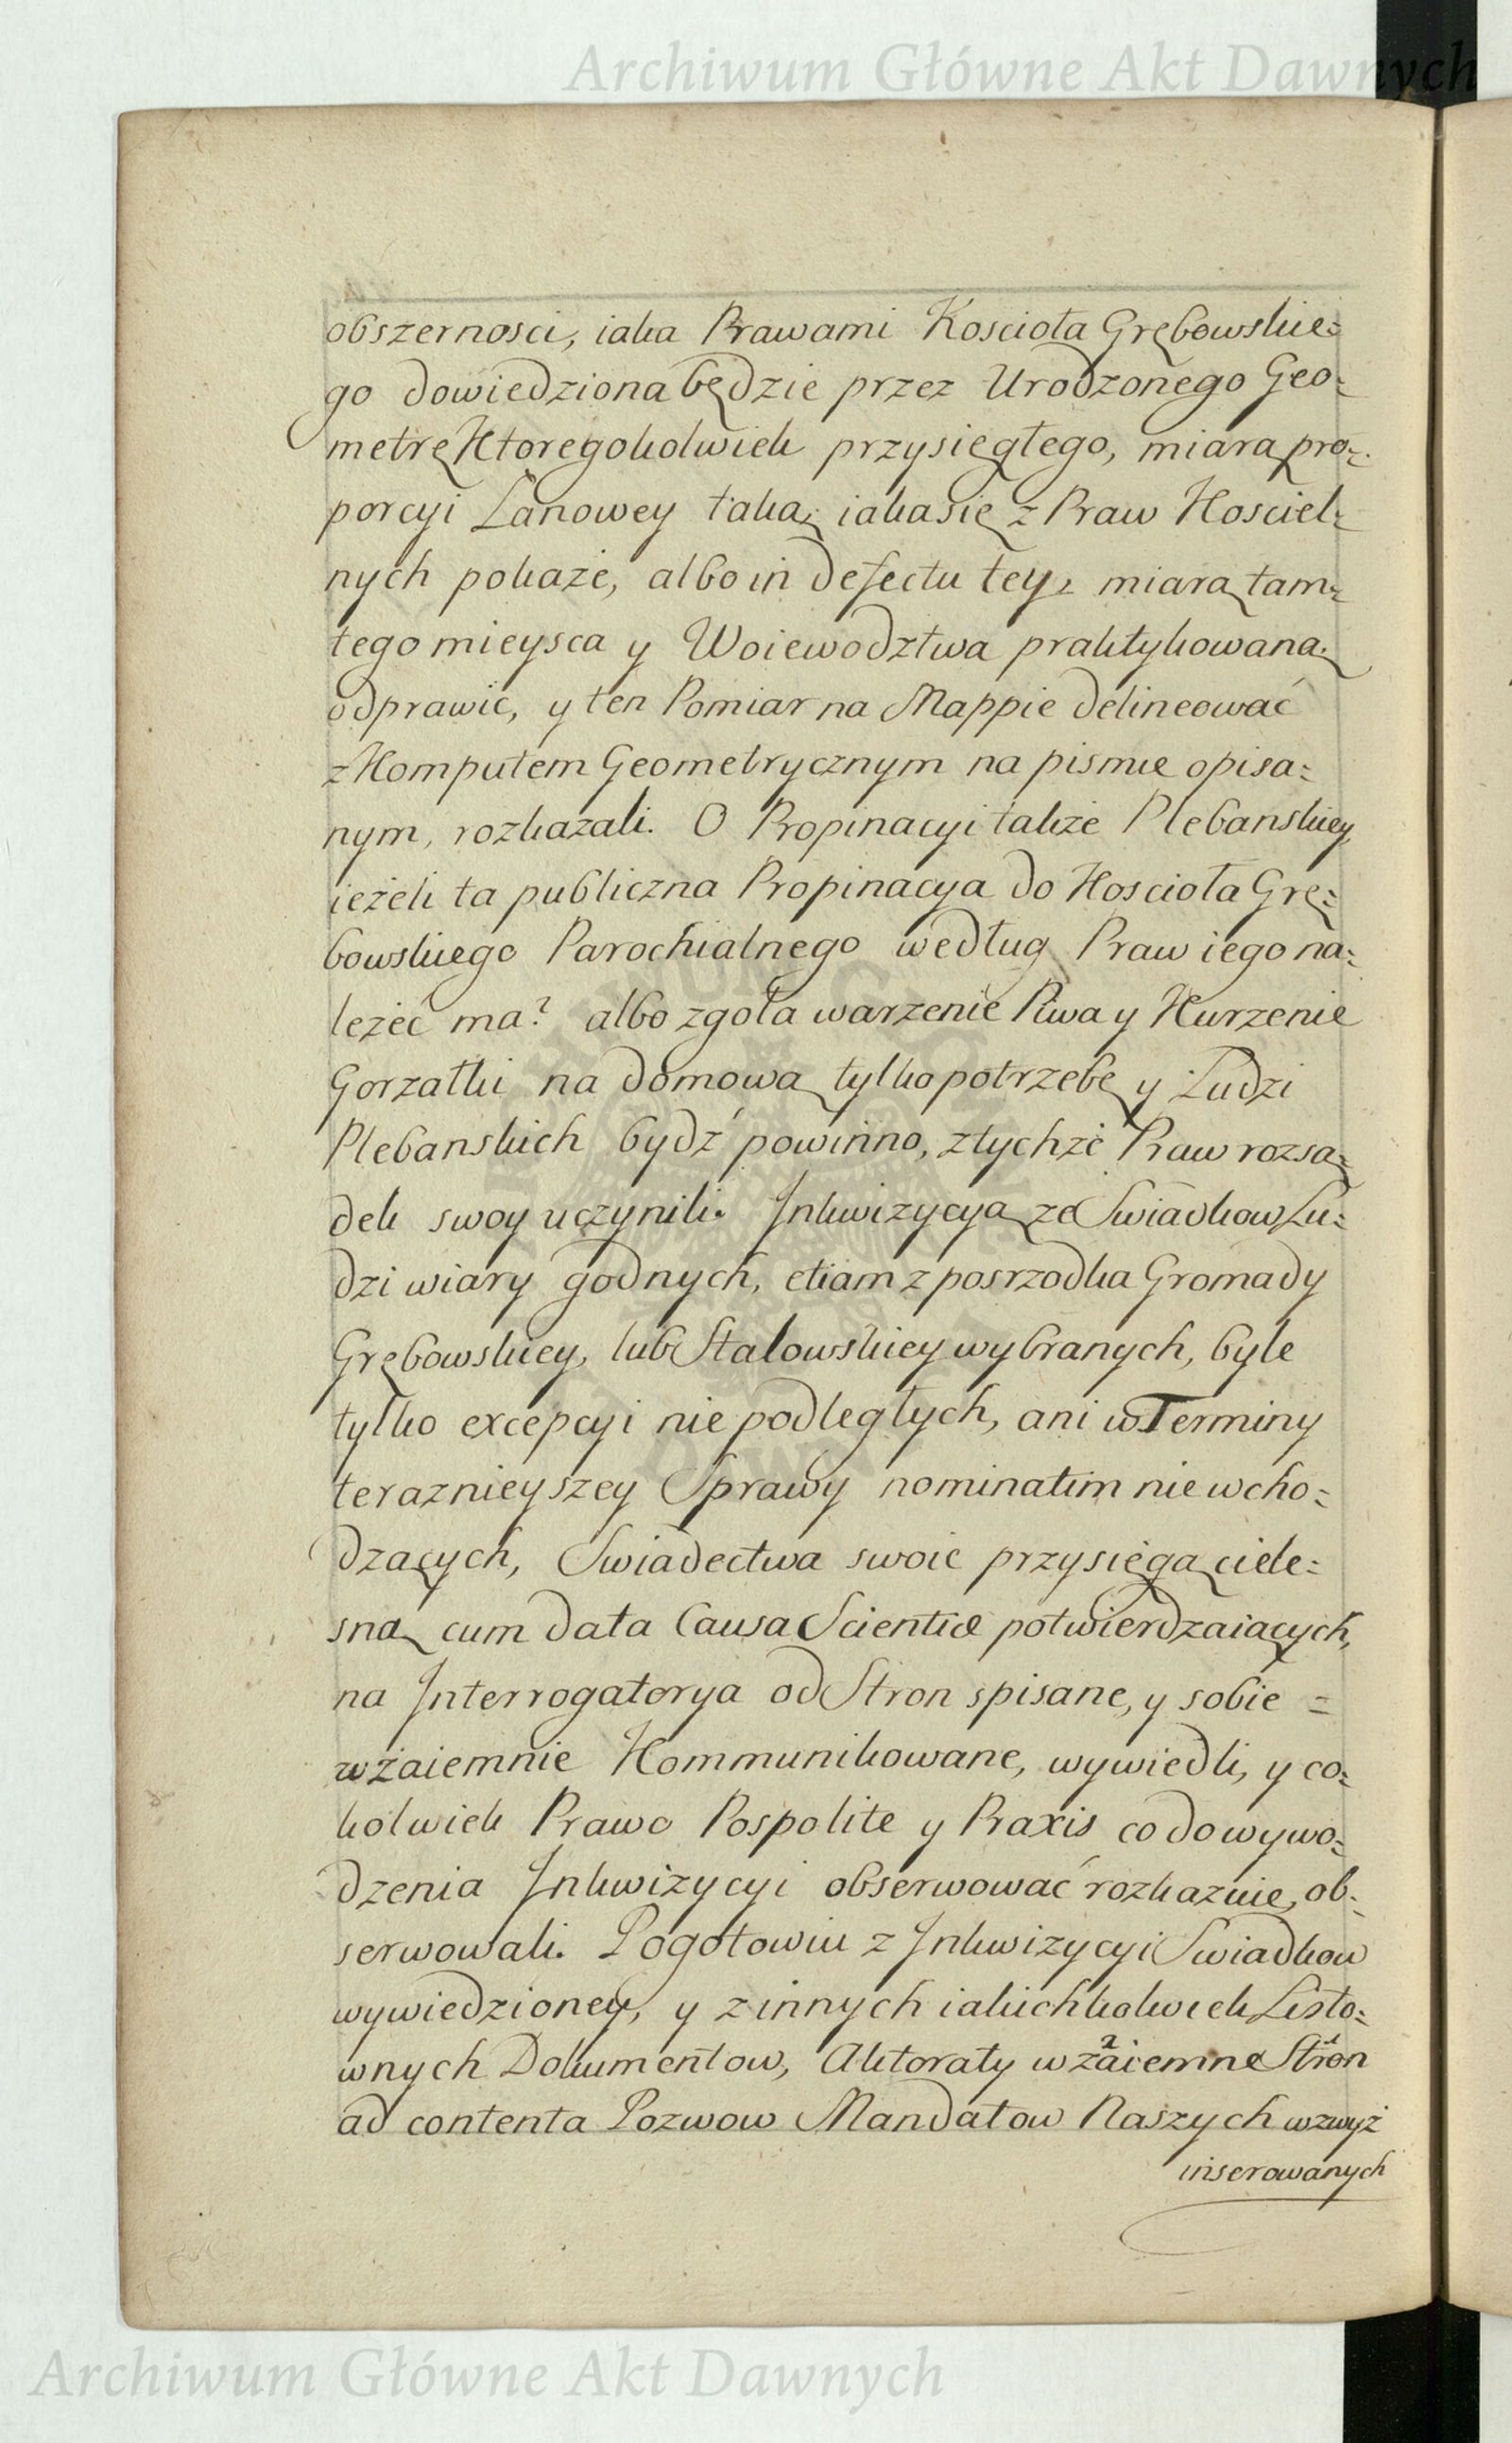 Archiwum Główne Akt Dawnych
obszernosci, iaka Prawami Koscioła Grębowskie=
go dowiedziona będzie przez Urodzonego Geo=
metrę Ktoregokolwiek przysięgłego, miarą pro=
porcyi Łanowey taką, iaka się z Praw Kosciel=
nych pokaże, albo in defectu tey, miarą tam=
tego mieysca y Woiewodztwa praktykowaną
odprawić, y ten Pomiar na Mappie delineować
z Komputem Geometrycznym na pismie opisa=
nym, rozkazali. O Propinacyi także Plebanskiey,
ieżeli ta publiczna Propinacya do Koscioła Grę=
bowskiego Parochialnego według Praw iego na=
leżeć ma? albo zgoła warzenie Piwa y Kurzenie
Gorzałki na domową tylko potrzebę y Ludzi
Plebanskich bydź powinno, z tychże Praw rozsą=
dek swoy uczynili. Inkwizycyą ze Swiadkow Lu=
dzi wiary godnych, etiam z posrzodka Gromady
Grębowskiey, lub Stalowskiey wybranych, byle
tylko excepcyi nie podległych, ani w Terminy
teraznieyszey Sprawy nominatim nie wcho=
dzących, Swiadectwa swoie przysięgą ciele=
sną cum data Causa Scientiæ potwierdzaiących,
na Interrogatorya od Stron spisane, y sobie =
wzaiemnie Kommunikowane, wywiedli, y co=
kolwiek Prawo Pospolite y Praxis co do wywo=
dzenia Inkwizycyi obserwować rozkazuie, ob=
serwowali. Pogotowiu z Inkwizycyi Swiadkow
wywiedzioney, y z innych iakichkolwiek Listo=
wnych Dokumentow, Aktoraty wzaiemne Stron
ad contenta Pozwow Mandatow Naszych wzwyż
inserowanych
Archiwum Główne Akt Dawnych